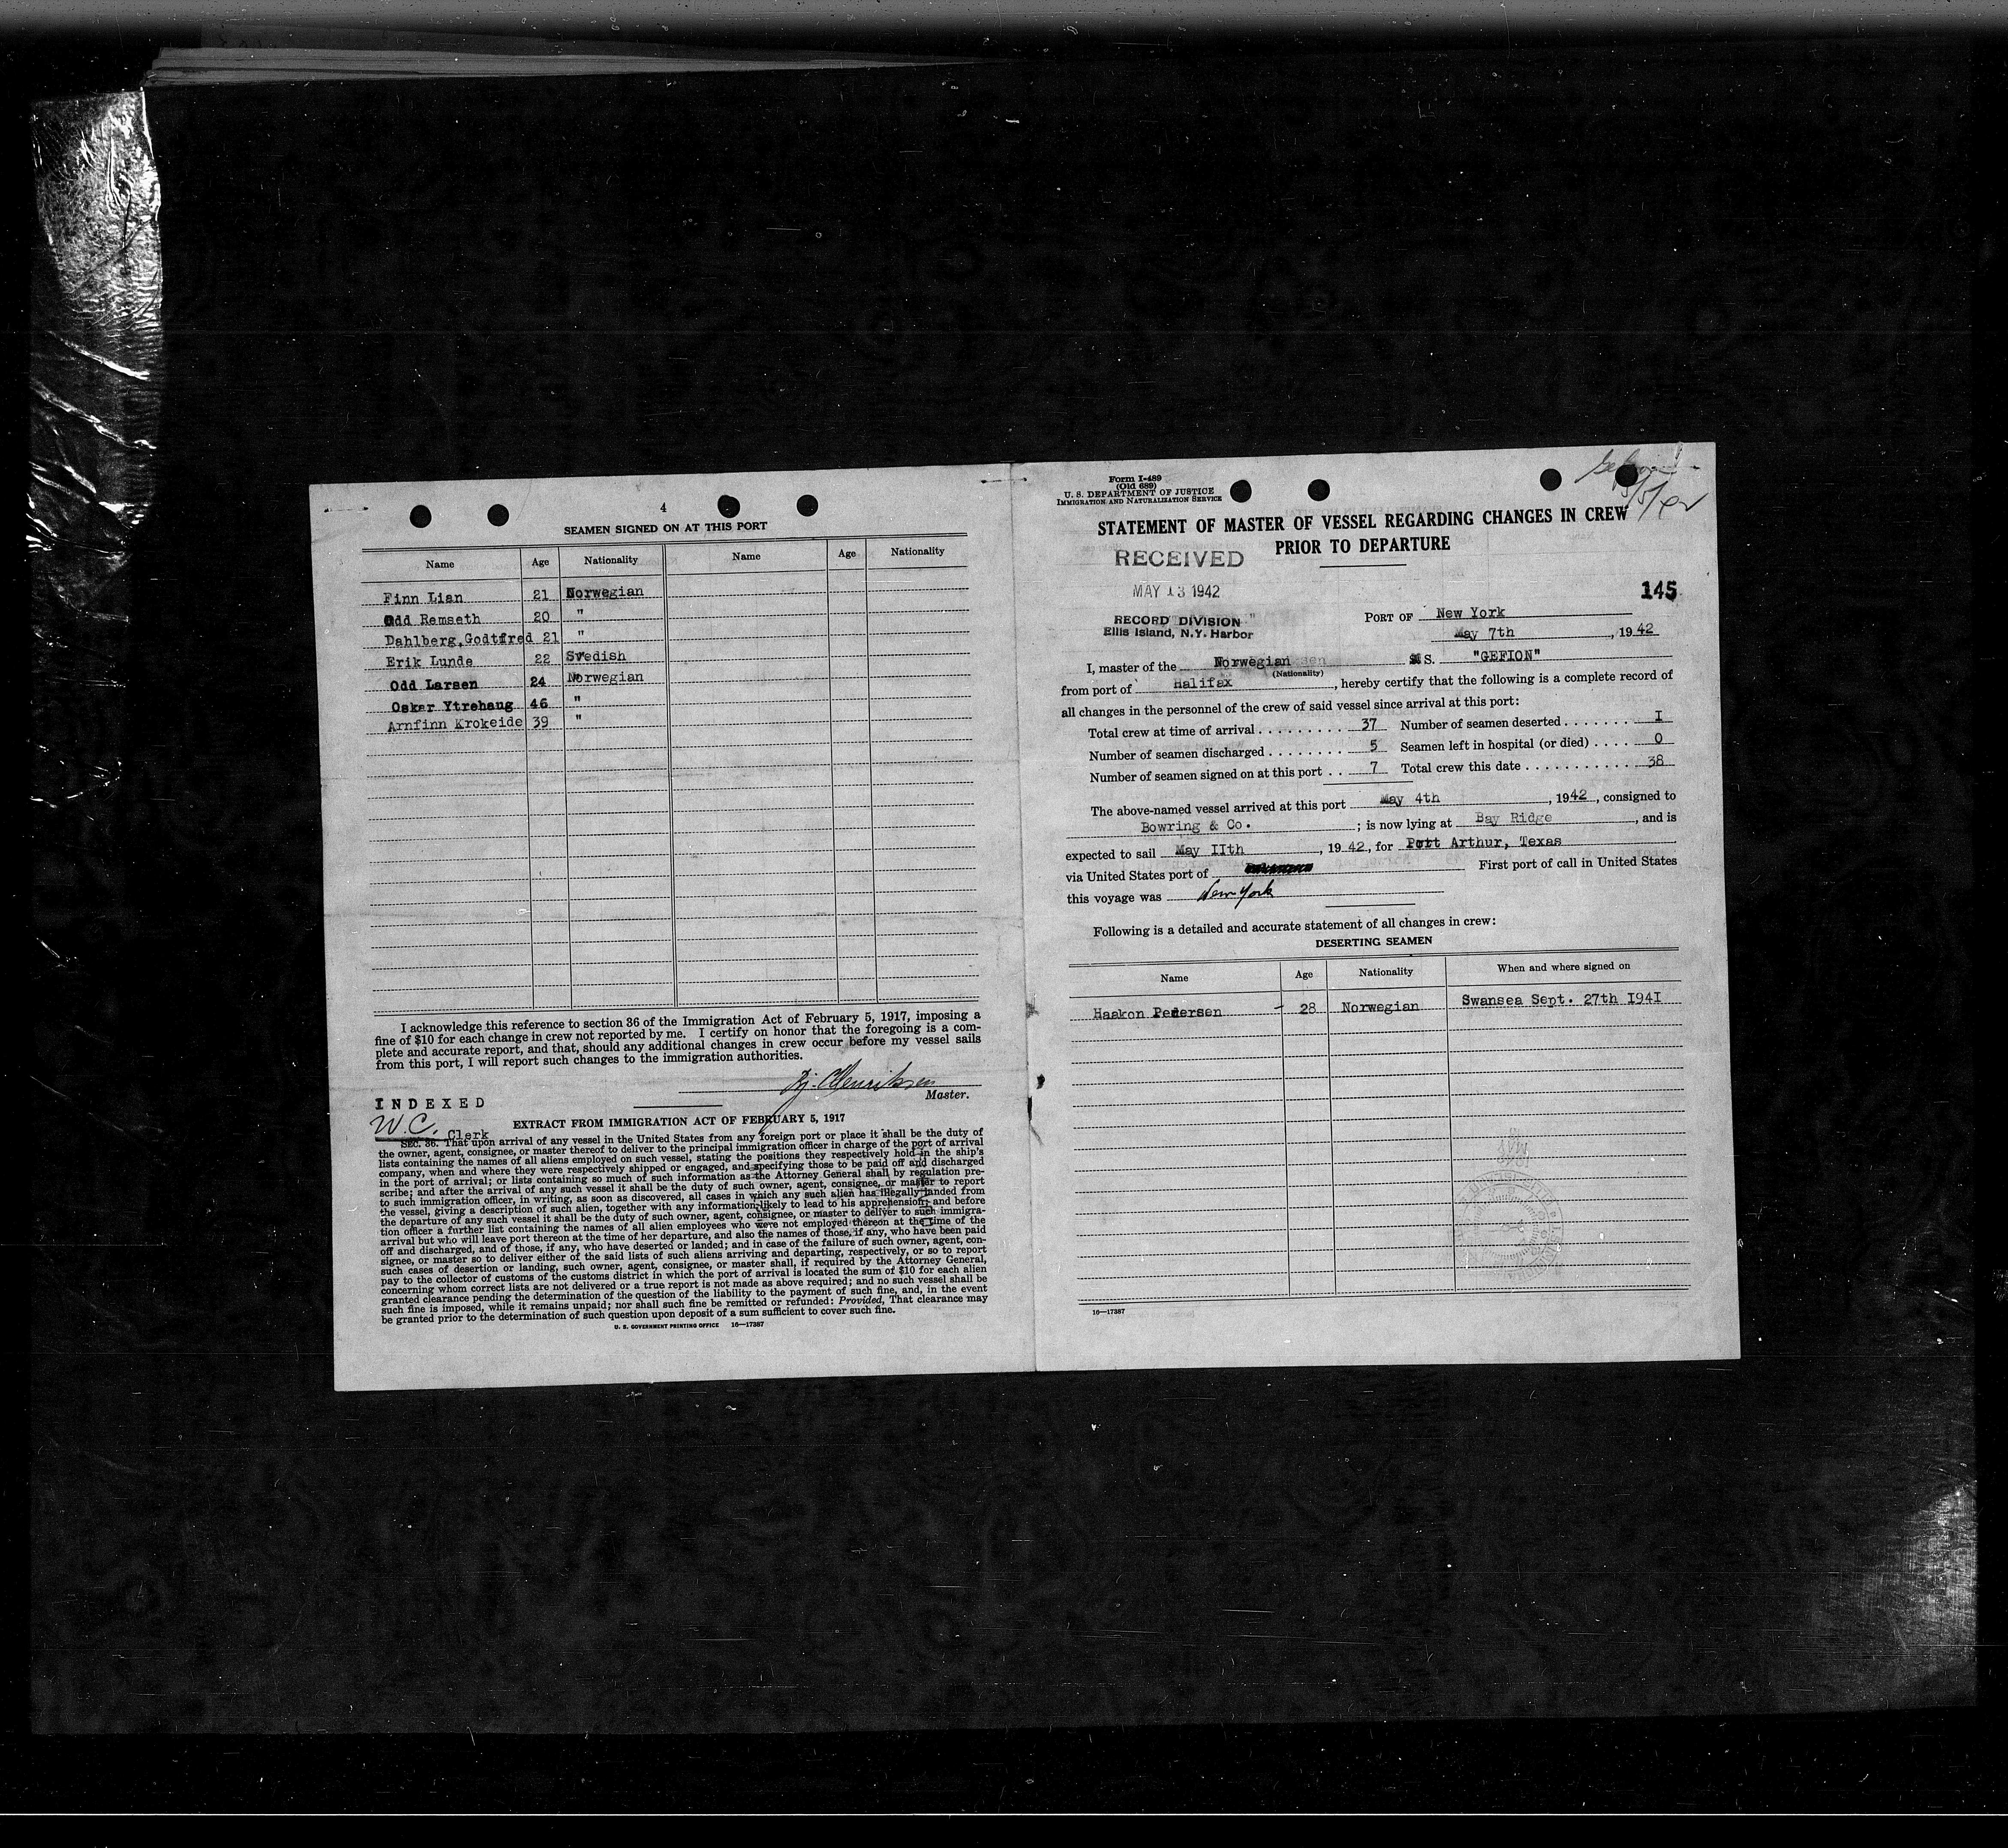 4
SEAMEN SIGNED ON AT THIS PORT
Name Age Nationality Name Age Nationality
Finn Lian 21 Norwegian
Odd Remseth 20 "
Dahlberg, Godtfred 21 "
Erik Lunde 22 Svedish
Odd Larsen 24 Norwegian
Oskar Ytrehaug 46 "
Arnfinn Krokeide 39 "
I acknowledge this reference to section 36 of the Immigration Act of February 5, 1917, imposing a
fine of $10 for each change in crew not reported by me. I certify on honor that the foregoing is a com-
plete and accurate report, and that, should any additional changes in crew occur before my vessel sails
from this port, I will report such changes to the immigration authorities.
Henriksen
Master.
INDEXED
W.C. Clerk
EXTRACT FROM IMMIGRATION ACT OF FEBRUARY 5, 1917
SEC. 36. That upon arrival of any vessel in the United States from any foreign port or place it shall be the duty of
the owner, agent, consignee, or master thereof to deliver to the principal immigration officer in charge of the port of arrival
lists containing the names of all aliens employed on such vessel, stating the positions they respectively hold in the ship's
company, when and where they were respectively shipped or engaged, and specifying those to be paid off and discharged
in the port of arrival; or lists containing so much of such information as the Attorney General shall by regulation pre-
scribe; and after the arrival of any such vessel it shall be the duty of such owner, agent, consignee, or master to report
to such immigration officer, in writing, as soon as discovered, all cases in which any such alien has illegally landed from
the vessel, giving a description of such alien, together with any information likely to lead to his apprehension; and before
the departure of any such vessel it shall be the duty of such owner, agent, consignee, or master to deliver to such immigra-
tion officer a further list containing the names of all alien employees who were not employed thereon at the time of the
arrival but who will leave port thereon at the time of her departure, and also the names of those, if any, who have been paid
off and discharged, and of those, if any, who have deserted or landed; and in case of the failure of such owner, agent, con-
signee, or master so to deliver either of the said lists of such aliens arriving and departing, respectively, or so to report
such cases of desertion or landing, such owner, agent, consignee, or master shall, if required by the Attorney General,
pay to the collector of customs of the customs district in which the port of arrival is located the sum of $10 for each alien
concerning whom correct lists are not delivered or a true report is not made as above required; and no such vessel shall be
granted clearance pending the determination of the question of the liability to the payment of such fine, and, in the event
such fine is imposed, while it remains unpaid; nor shall such fine be remitted or refunded: Provided, That clearance may
be granted prior to the determination of such question upon deposit of a sum sufficient to cover such fine.
U. S. GOVERNMENT PRINTING OFFICE 16—17387
Form I-489
(Old 689)
U. S. DEPARTMENT OF JUSTICE
IMMIGRATION AND NATURALIZATION SERVICE
STATEMENT OF MASTER OF VESSEL REGARDING CHANGES IN CREW
PRIOR TO DEPARTURE
RECEIVED
MAY 13 1942
RECORD DIVISION
Ellis Island, N.Y. Harbor
145
PORT OF New York
May 7th, 1942
I, master of the Norwegian S. "GEFION"
(Nationality)
from port of Halifax, hereby certify that the following is a complete record of
all changes in the personnel of the crew of said vessel since arrival at this port:
Total crew at time of arrival . . . . . . . . . 37 Number of seamen deserted . . . . . . . I
Number of seamen discharged . . . . . . . . 5 Seamen left in hospital (or died) . . . . 0
Number of seamen signed on at this port . . 7 Total crew this date . . . . . . . . . . . 38
The above-named vessel arrived at this port May 4th, 1942, consigned to
Bowring & Co. ; is now lying at Bay Ridge, and is
expected to sail May IIth, 1942, for Port Arthur, Texas
via United States port of First port of call in United States
this voyage was New York
Following is a detailed and accurate statement of all changes in crew:
DESERTING SEAMEN
Name Age Nationality When and where signed on
Haakon Pedersen - 28 Norwegian Swansea Sept. 27th I94I
16—17387